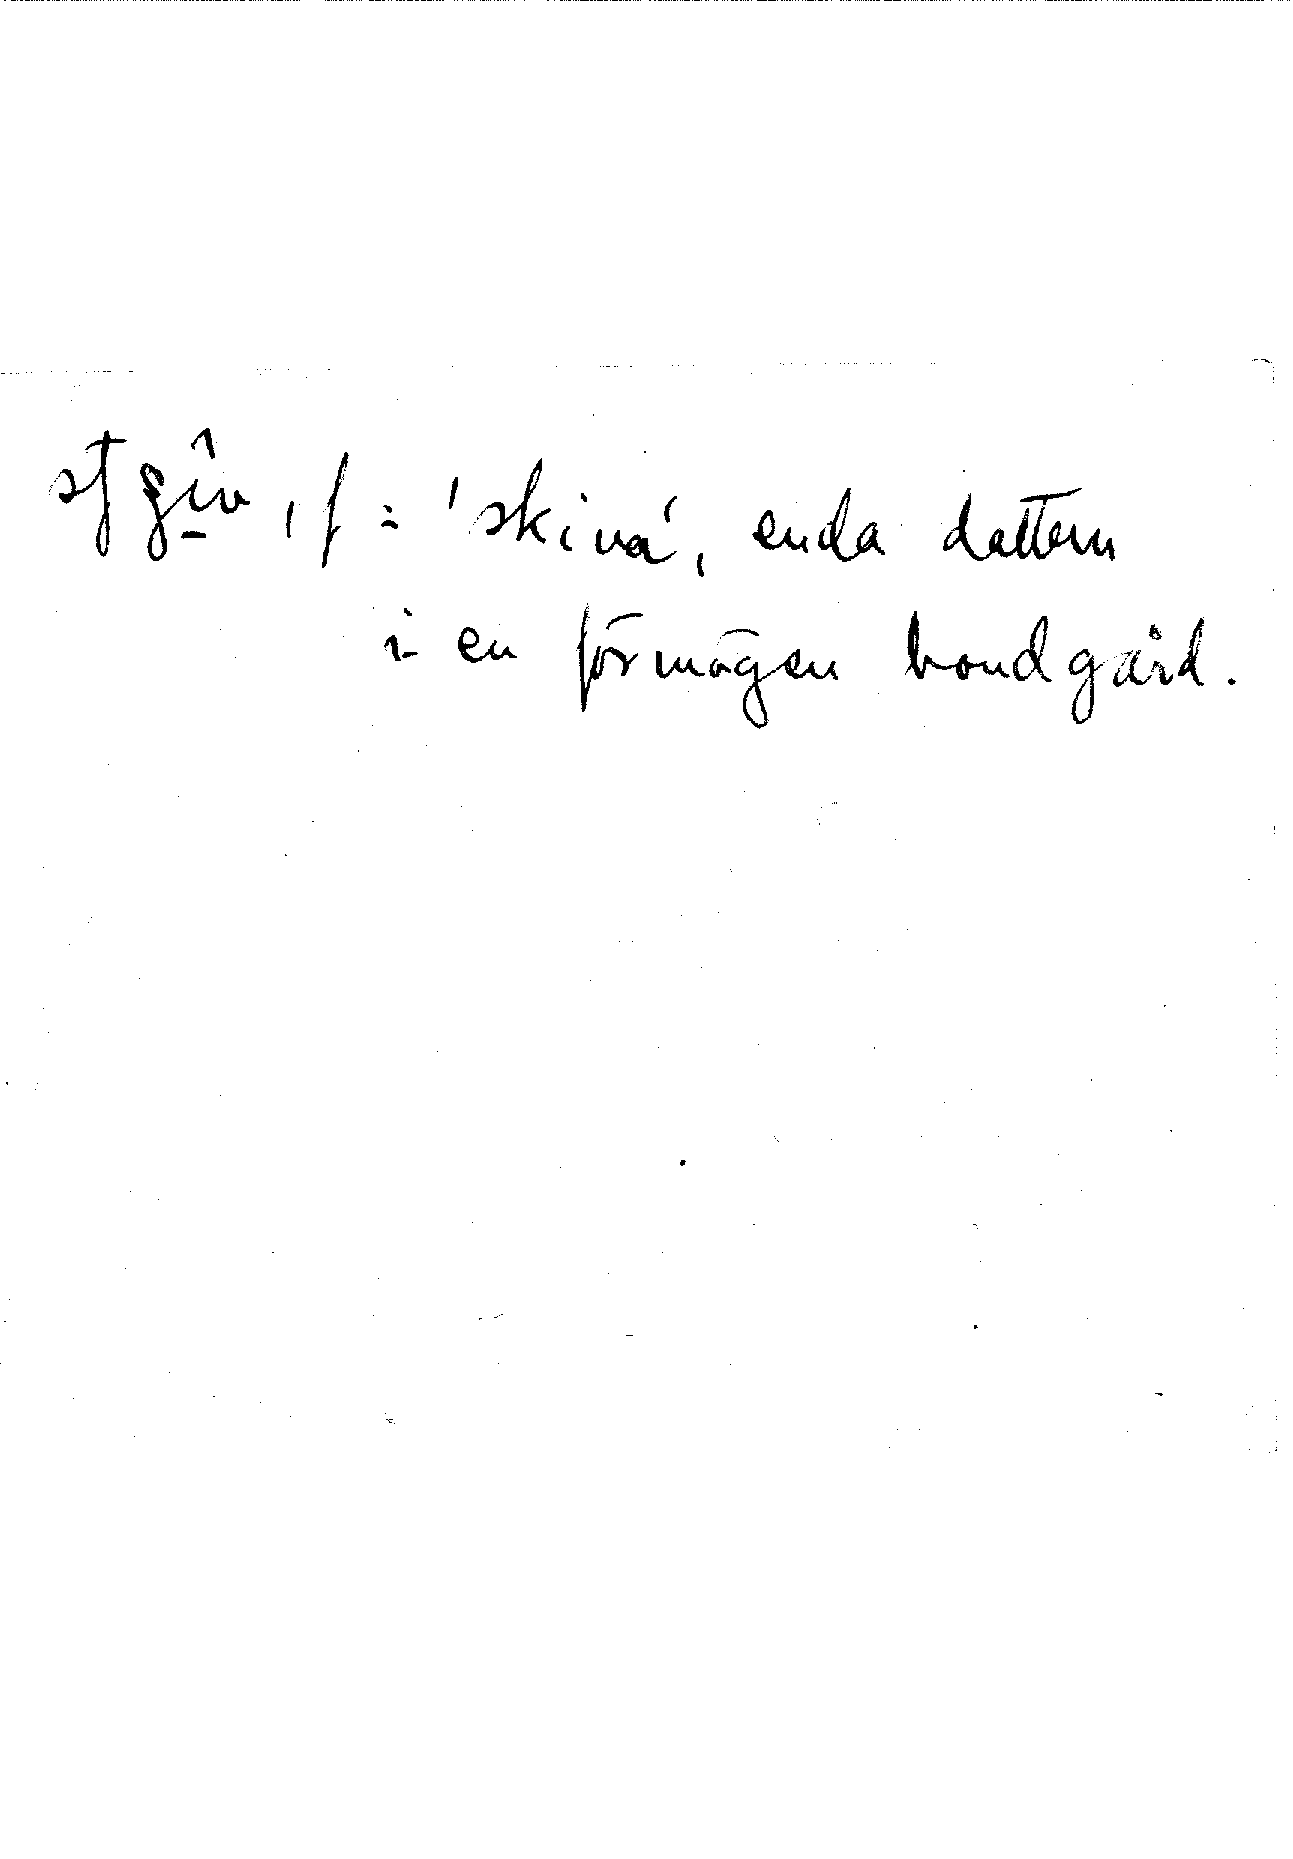 , f = 'skiva', enda dottern
i en förmögen bondgård.